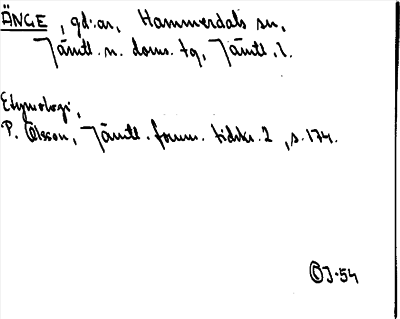 ÄNGE, gd:ar, Hammerdals sn,
Jämtl. n. doms. tg, Jämtl. l.
Etymologi,
P. Olsson, Jämtl. fornm. tidskr. 2, s. 174.
OJ·54